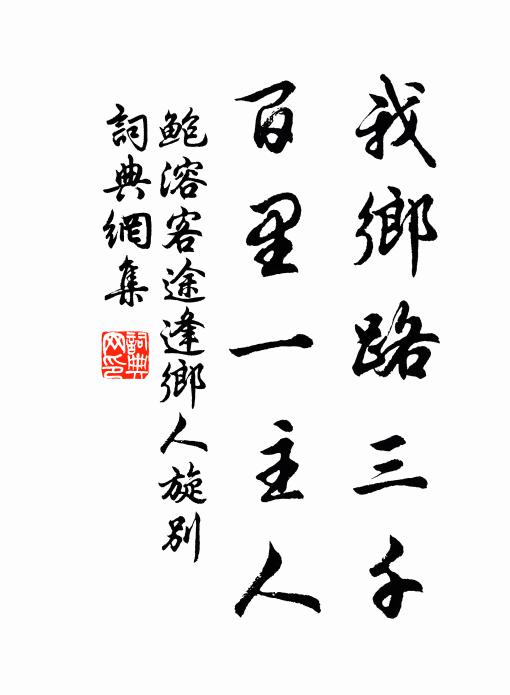 我鄉路三千
百里一主人
鮑溶客途逢鄉人旋別
詞典網集
詞典网印